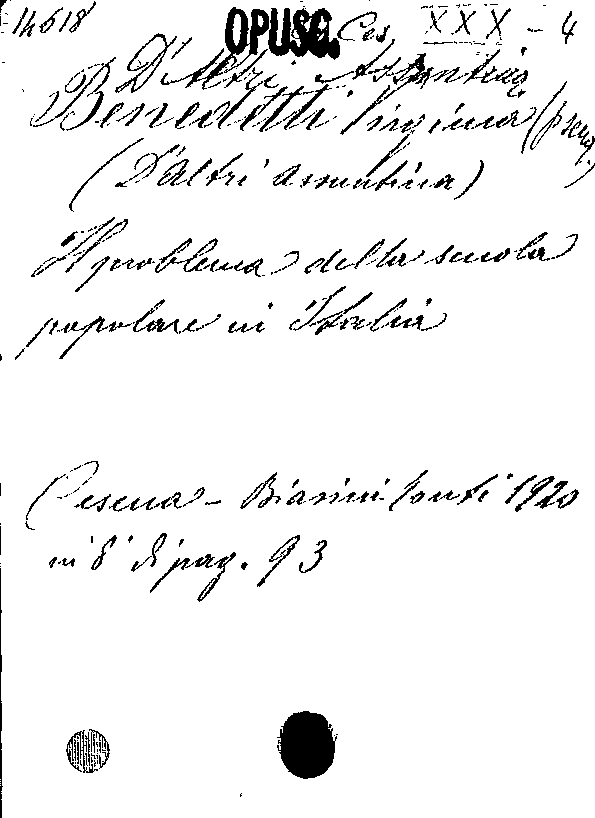 14618 OPUSC. Ces. XXX - 4
D'Altri Assuntina
Benedetti Virginia (pseud.)
(D'altri Assuntina)
Il problema della scuola
popolare in Italia
Cesena - Biasini Tonti 1920
in 8° di pag. 93